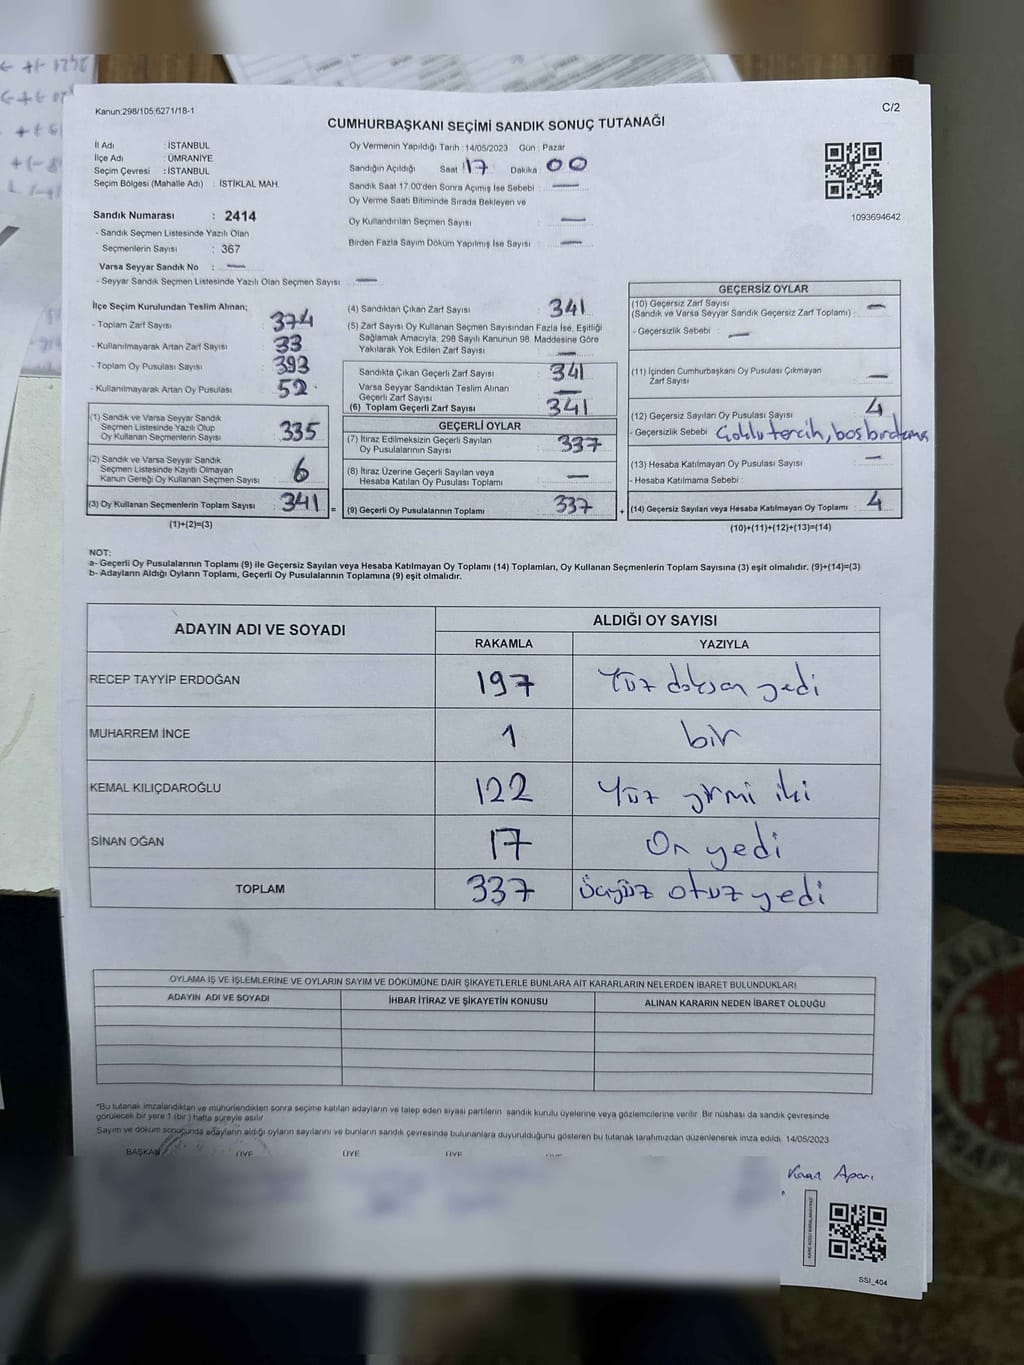 Kanun:298/105,6271/18-1
C/2
CUMHURBAŞKANI SEÇİMİ SANDIK SONUÇ TUTANAĞI
İl Adı : İSTANBUL
İlçe Adı : ÜMRANİYE
Seçim Çevresi : İSTANBUL
Seçim Bölgesi (Mahalle Adı) : İSTİKLAL MAH.
Sandık Numarası : 2414
- Sandık Seçmen Listesinde Yazılı Olan
Seçmenlerin Sayısı : 367
Varsa Seyyar Sandık No : —
- Seyyar Sandık Seçmen Listesinde Yazılı Olan Seçmen Sayısı : —
Oy Vermenin Yapıldığı Tarih : 14/05/2023 Gün : Pazar
Sandığın Açıldığı Saat : 17 Dakika : 00
Sandık Saat 17.00'den Sonra Açımış İse Sebebi : —
Oy Verme Saati Bitiminde Sırada Bekleyen ve
Oy Kullandırılan Seçmen Sayısı : —
Birden Fazla Sayım Döküm Yapılmış İse Sayısı : —
1093694642
İlçe Seçim Kurulundan Teslim Alınan;
- Toplam Zarf Sayısı : 374
- Kullanılmayarak Artan Zarf Sayısı : 33
- Toplam Oy Pusulası Sayısı : 393
- Kullanılmayarak Artan Oy Pusulası : 52
(1) Sandık ve Varsa Seyyar Sandık
Seçmen Listesinde Yazılı Olup
Oy Kullanan Seçmenlerin Sayısı : 335
(2) Sandık ve Varsa Seyyar Sandık
Seçmen Listesinde Kayıtlı Olmayan
Kanun Gereği Oy Kullanan Seçmen Sayısı : 6
(3) Oy Kullanan Seçmenlerin Toplam Sayısı : 341 =
(1)+(2)=(3)
(4) Sandıktan Çıkan Zarf Sayısı : 341
(5) Zarf Sayısı Oy Kullanan Seçmen Sayısından Fazla İse, Eşitliği
Sağlamak Amacıyla; 298 Sayılı Kanunun 98. Maddesine Göre
Yakılarak Yok Edilen Zarf Sayısı : —
Sandıkta Çıkan Geçerli Zarf Sayısı : 341
Varsa Seyyar Sandıktan Teslim Alınan
Geçerli Zarf Sayısı : —
(6) Toplam Geçerli Zarf Sayısı : 341
GEÇERLİ OYLAR
(7) İtiraz Edilmeksizin Geçerli Sayılan
Oy Pusulalarının Sayısı : 337
(8) İtiraz Üzerine Geçerli Sayılan veya
Hesaba Katılan Oy Pusulası Toplamı : —
(9) Geçerli Oy Pusulalarının Toplamı : 337 +
GEÇERSİZ OYLAR
(10) Geçersiz Zarf Sayısı
(Sandık ve Varsa Seyyar Sandık Geçersiz Zarf Toplamı) : —
- Geçersizlik Sebebi : —
(11) İçinden Cumhurbaşkanı Oy Pusulası Çıkmayan
Zarf Sayısı : —
(12) Geçersiz Sayılan Oy Pusulası Sayısı : 4
- Geçersizlik Sebebi : Çoklu tercih, boş bırakma
(13) Hesaba Katılmayan Oy Pusulası Sayısı : —
- Hesaba Katılmama Sebebi :
(14) Geçersiz Sayılan veya Hesaba Katılmayan Oy Toplamı : 4
(10)+(11)+(12)+(13)=(14)
NOT:
a- Geçerli Oy Pusulalarının Toplamı (9) ile Geçersiz Sayılan veya Hesaba Katılmayan Oy Toplamı (14) Toplamları, Oy Kullanan Seçmenlerin Toplam Sayısına (3) eşit olmalıdır. (9)+(14)=(3)
b- Adayların Aldığı Oyların Toplamı, Geçerli Oy Pusulalarının Toplamına (9) eşit olmalıdır.
ADAYIN ADI VE SOYADI
ALDIĞI OY SAYISI
RAKAMLA YAZIYLA
RECEP TAYYİP ERDOĞAN 197 Yüz doksan yedi
MUHARREM İNCE 1 bir
KEMAL KILIÇDAROĞLU 122 Yüz yirmi iki
SİNAN OĞAN 17 On yedi
TOPLAM 337 üçyüz otuz yedi
OYLAMA İŞ VE İŞLEMLERİNE VE OYLARIN SAYIM VE DÖKÜMÜNE DAİR ŞİKAYETLERLE BUNLARA AİT KARARLARIN NELERDEN İBARET BULUNDUKLARI
ADAYIN ADI VE SOYADI İHBAR İTİRAZ VE ŞİKAYETİN KONUSU ALINAN KARARIN NEDEN İBARET OLDUĞU
*Bu tutanak imzalandıktan ve mühürlendikten sonra seçime katılan adayların ve talep eden siyasi partilerin sandık kurulu üyelerine veya gözlemcilerine verilir. Bir nüshası da sandık çevresinde
görülecek bir yere 1 (bir) hafta süreyle asılır.
Sayım ve döküm sonucunda adayların aldığı oyların sayılarını ve bunların sandık çevresinde bulunanlara duyurulduğunu gösteren bu tutanak tarafımızdan düzenlenerek imza edildi. 14/05/2023
BAŞKAN ÜYE ÜYE ÜYE
SSI_404